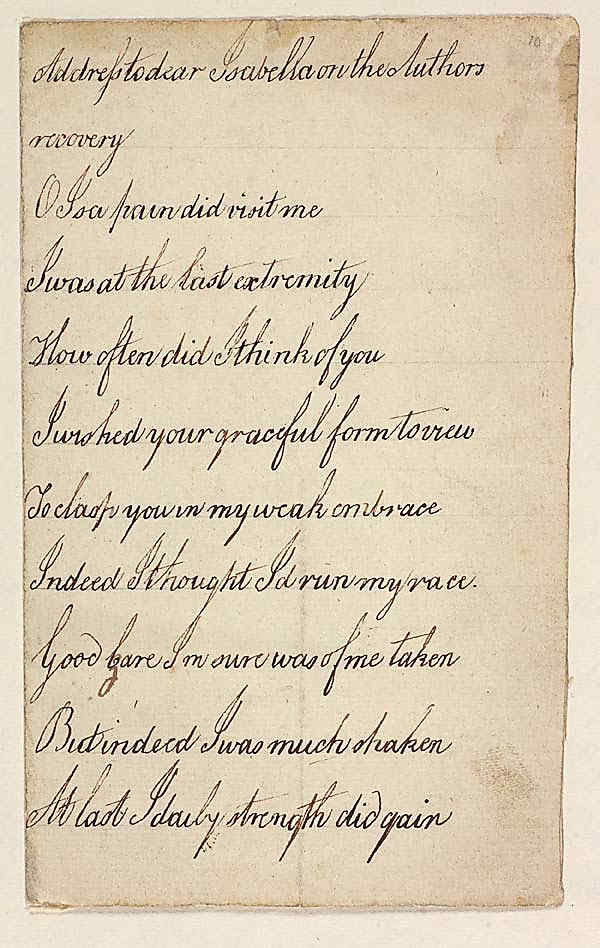 10
Address to dear Isabella on the Authors
recovery
O Isa pain did visit me
I was at the last extremity
How often did I think of you
I wished your graceful form to view
To clasp you in my weak embrace
Indeed I thought I'd run my race.
Good Care I'm sure was of me taken
But indeed I was much shaken
At last I daily strength did gain